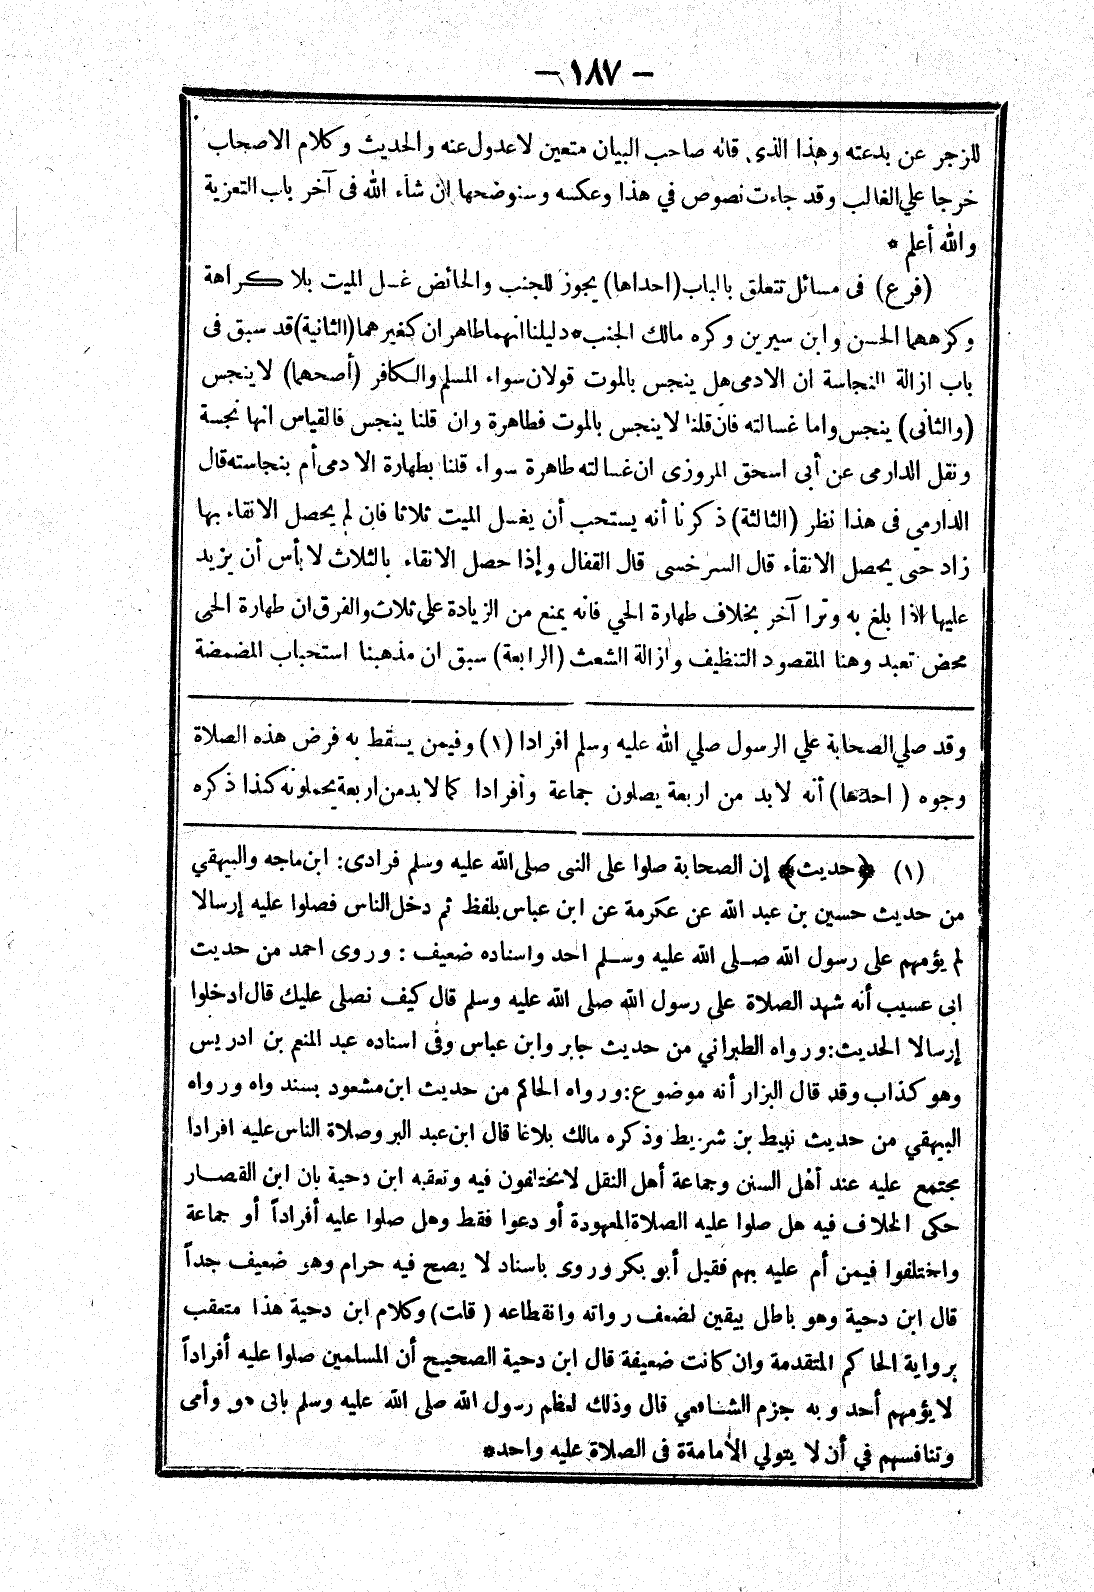 — ١٨٧ —
للزجر عن بدعته وهذا الذي قاله صاحب البيان متعين لاعدول عنه والحديث وكلام الاصحاب
خرجا علي الغالب وقد جاءت نصوص في هذا وعكسه وسنوضحها ان شاء الله فى آخر باب التعزية
والله أعلم *
(فرع) فى مسائل تتعلق بالباب (احداها) يجوز للجنب والحائض غسل الميت بلا كراهة
وكرههما الحسن وابن سيرين وكره مالك الجنب* دليلنا انهما طاهران كغيرهما (الثانية) قد سبق فى
باب ازالة النجاسة ان الادمى هل ينجس بالموت قولان سواء المسلم والكافر (أصحهما) لا ينجس
(والثانى) ينجس واما غسالته فان قلنا لا ينجس بالموت فطاهرة وان قلنا ينجس فالقياس انها نجسة
ونقل الدارمى عن أبى اسحق المروزى ان غسالته طاهرة سواء قلنا بطهارة الادمى أم بنجاسته قال
الدارمي فى هذا نظر (الثالثة) ذكرنا أنه يستحب أن يغسل الميت ثلاثا فان لم يحصل الانقاء بها
زاد حتى يحصل الانقاء قال السرخسى قال القفال وإذا حصل الانقاء بالثلاث لا بأس أن يزيد
عليها اذا بلغ به وترا آخر بخلاف طهارة الحي فانه يمنع من الزيادة علي ثلاث والفرق ان طهارة الحى
محض تعبد وهنا المقصود التنظيف وازالة الشعث (الرابعة) سبق ان مذهبنا استحباب المضمضة
وقد صلي الصحابة علي الرسول صلي الله عليه وسلم افرادا (١) وفيمن يسقط به فرض هذه الصلاة
وجوه (احدها) أنه لا بد من اربعة يصلون جماعة وأفرادا كما لا بد من اربعة يحملونه كذا ذكره
(١) ﴿حديث﴾ إن الصحابة صلوا على النبى صلى الله عليه وسلم فرادى: ابن ماجه والبيهقي
من حديث حسين بن عبد الله عن عكرمة عن ابن عباس بلفظ ثم دخل الناس فصلوا عليه إرسالا
لم يؤمهم على رسول الله صلى الله عليه وسلم احد واسناده ضعيف : وروى احمد من حديث
ابى عسيب أنه شهد الصلاة على رسول الله صلى الله عليه وسلم قال كيف نصلى عليك قال ادخلوا
إرسالا الحديث: ورواه الطبراني من حديث جابر وابن عباس وفى اسناده عبد المنعم بن ادريس
وهو كذاب وقد قال البزار أنه موضوع: ورواه الحاكم من حديث ابن مسعود بسند واه ورواه
البيهقي من حديث نبيط بن شريط وذكره مالك بلاغا قال ابن عبد البر وصلاة الناس عليه افرادا
مجتمع عليه عند أهل السنن وجماعة أهل النقل لا يختلفون فيه وتعقبه ابن دحية بان ابن القصار
حكى الخلاف فيه هل صلوا عليه الصلاة المعهودة أو دعوا فقط وهل صلوا عليه أفراداً أو جماعة
واختلفوا فيمن أم عليه بهم فقيل أبو بكر وروى باسناد لا يصح فيه حرام وهو ضعيف جداً
قال ابن دحية وهو باطل بيقين لضعف رواته وانقطاعه (قلت) وكلام ابن دحية هذا متعقب
برواية الحاكم المتقدمة وان كانت ضعيفة قال ابن دحية الصحيح أن المسلمين صلوا عليه أفراداً
لا يؤمهم أحد وبه جزم الشافعي قال وذلك لعظم رسول الله صلى الله عليه وسلم بابى هو وأمى
وتنافسهم في أن لا يتولي الأمامة فى الصلاة عليه واحد*